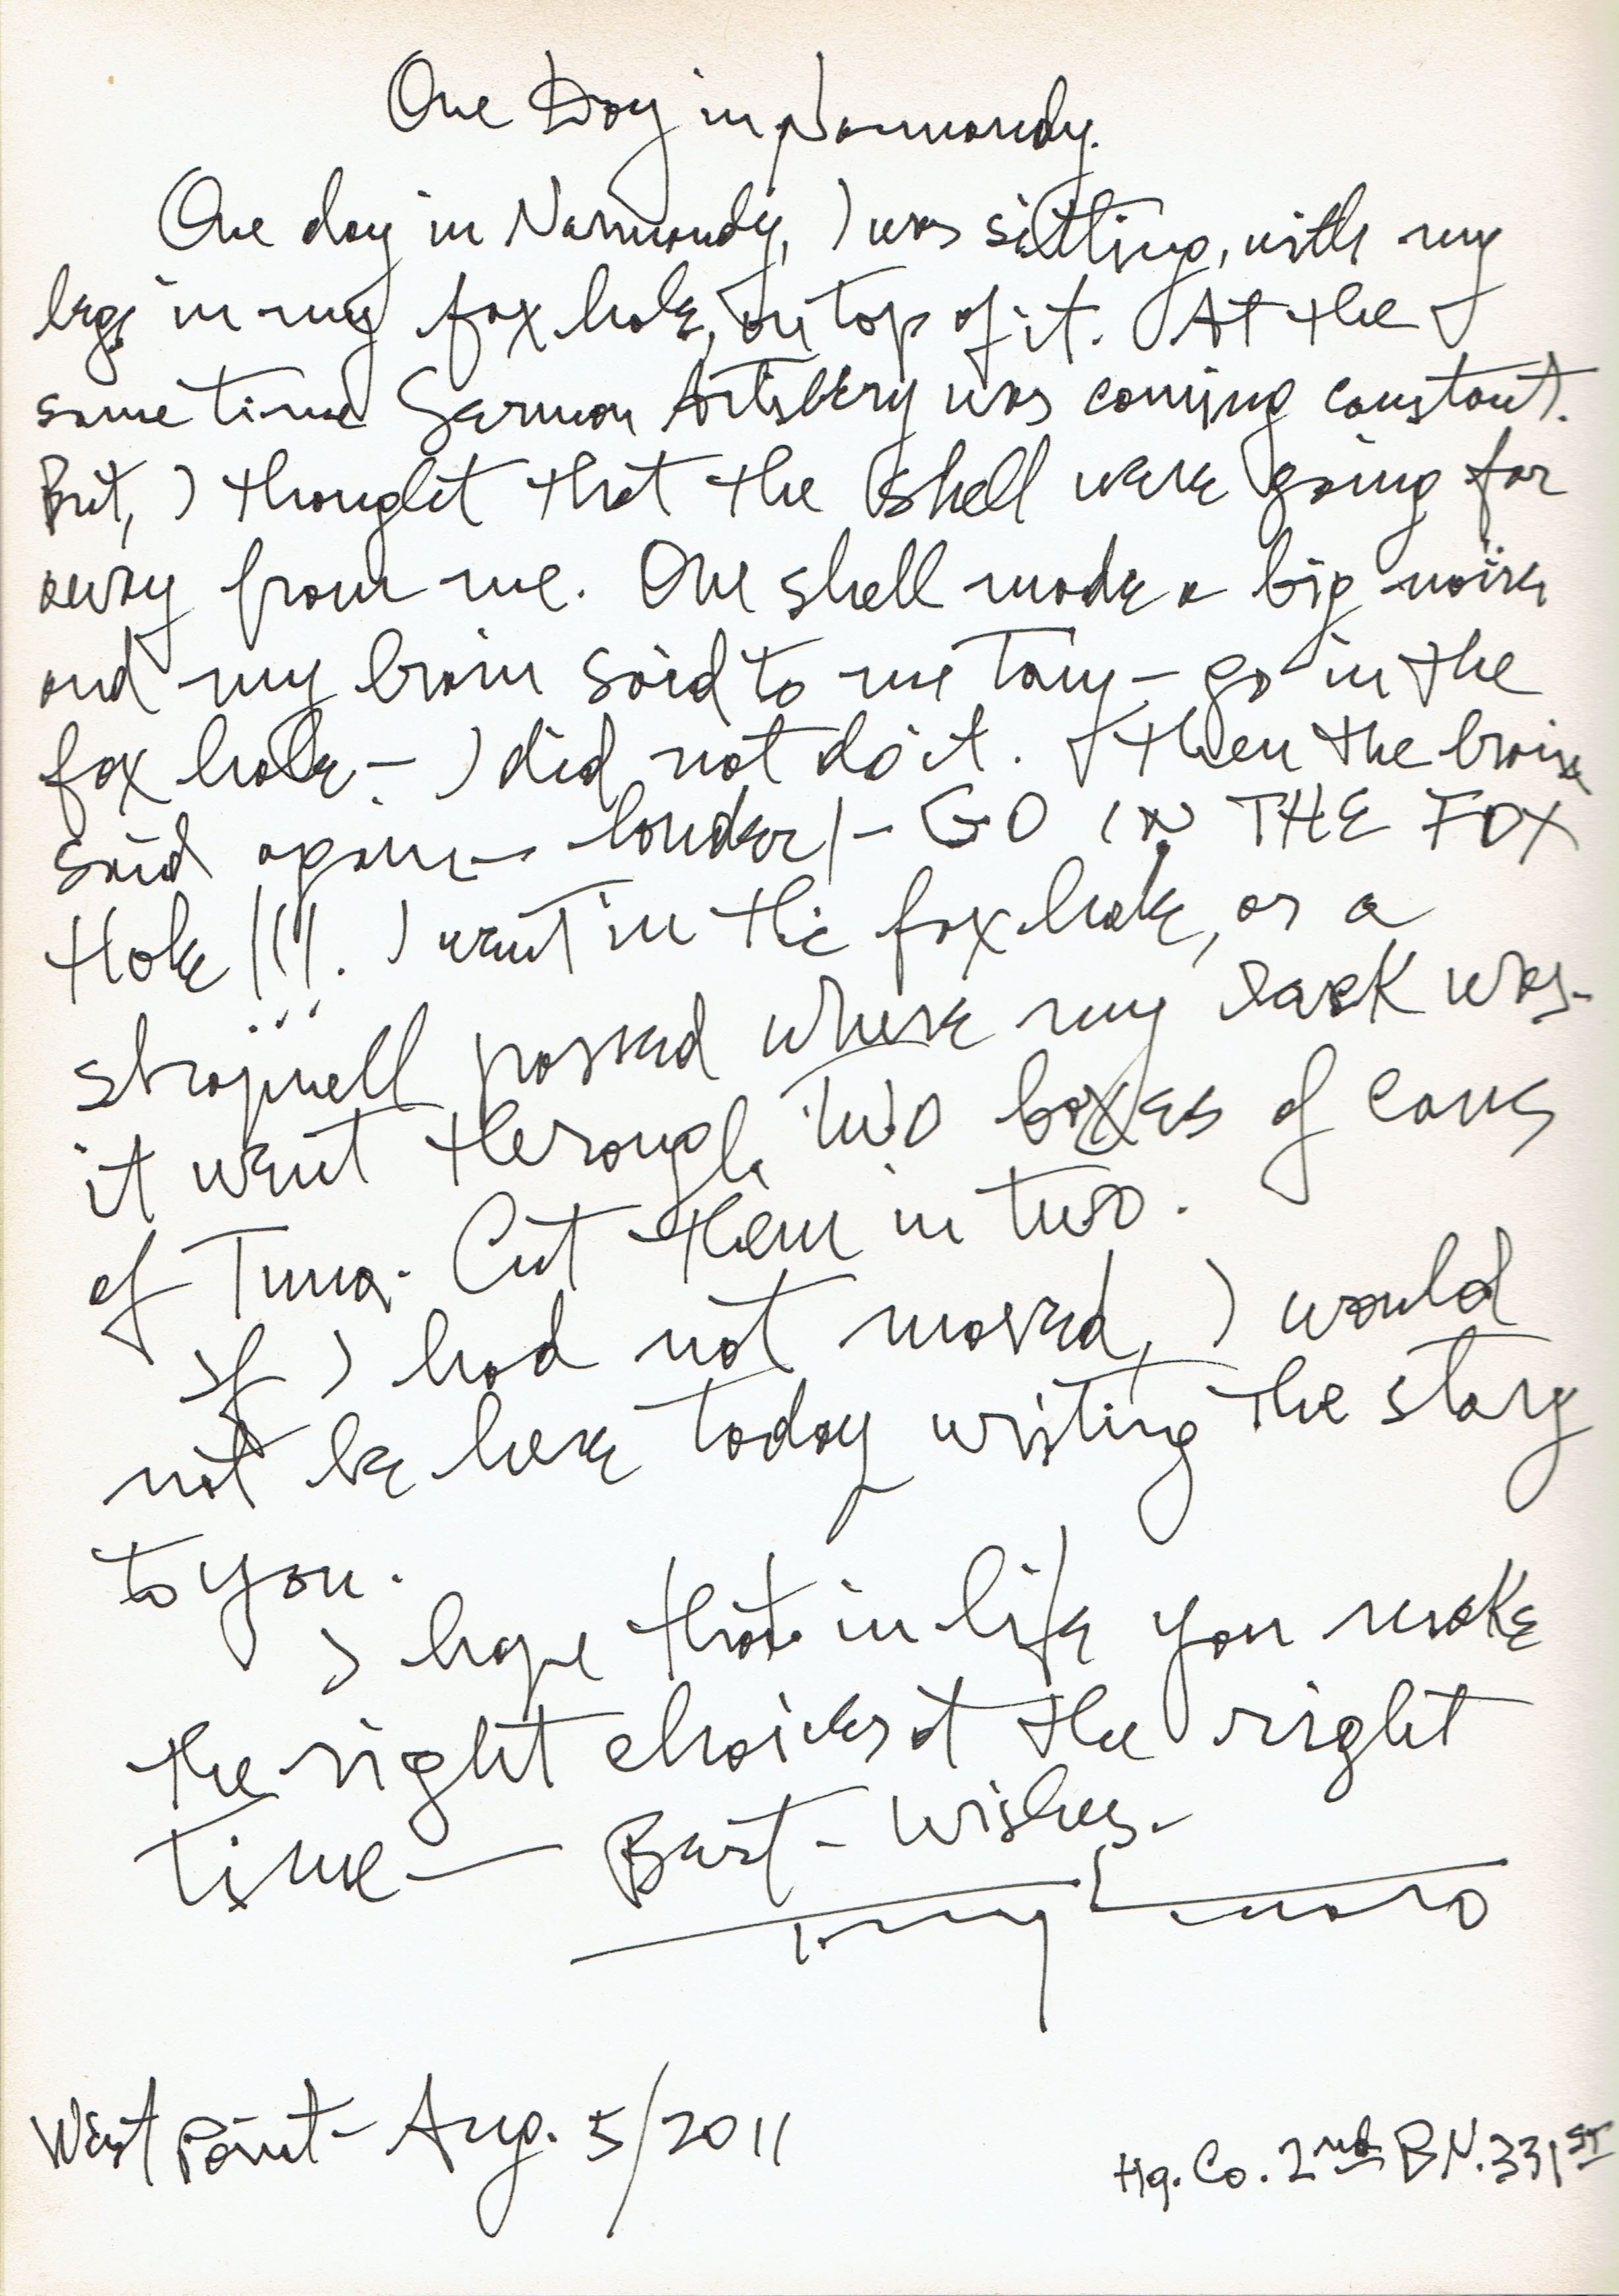 One Day in Normandy.
One day in Normandy, I was sitting, with my
legs in my fox hole, on top of it. At the
same time German Artillery was coming constant).
But, I thought that the shell were going far
away from me. One shell made a big noise
and my brain said to me Tony - go in the
fox hole - I did not do it. Then the brain
said again - louder/- GO IN THE FOX
Hole !!!. I went in the fox hole, as a
shrapnell passed where my sack was-
it went through two boxes of cans
of Tuna. Cut them in two.
If I had not moved, I would
not be here today writing the story
to you.
I hope that in life you make
the right choices at the right
time - Best - Wishes -
Tony
West Point - Aug. 5/2011
Hq. Co. 2nd BN. 331st